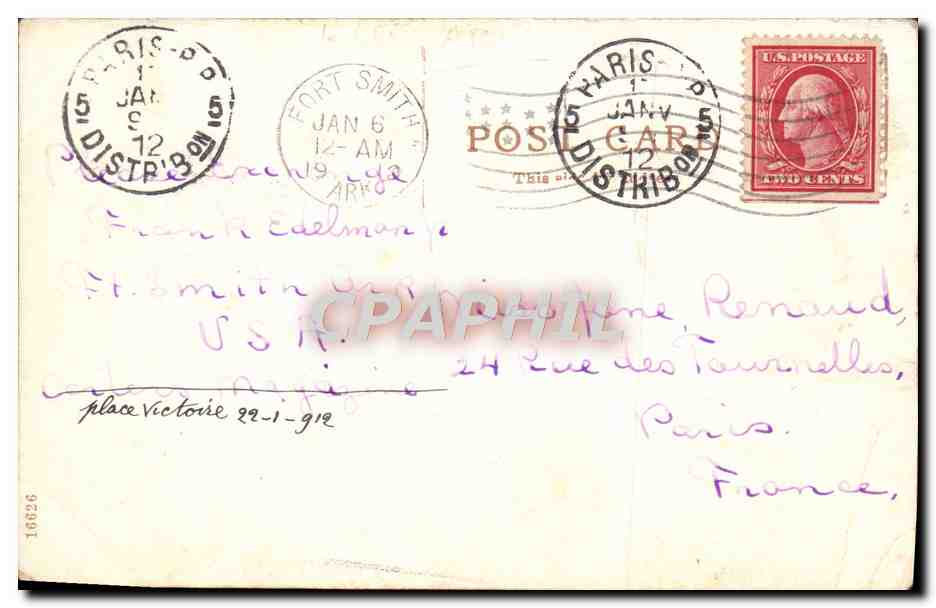 PARIS-P.P
JAN
5 5
12
DISTRIBON
FORT SMITH
JAN 6
12-AM
ARK
POST CARD
This
PARIS- P
5 JANV 5
12
DISTRIBON
U.S. POSTAGE
TWO CENTS
Please
Frank Edelman
Ft. Smith
U S A.
CPAPHIL
Jane Renaud,
24 Rue des Tournelles,
Paris.
France.
place victoire 22-1-912
16626